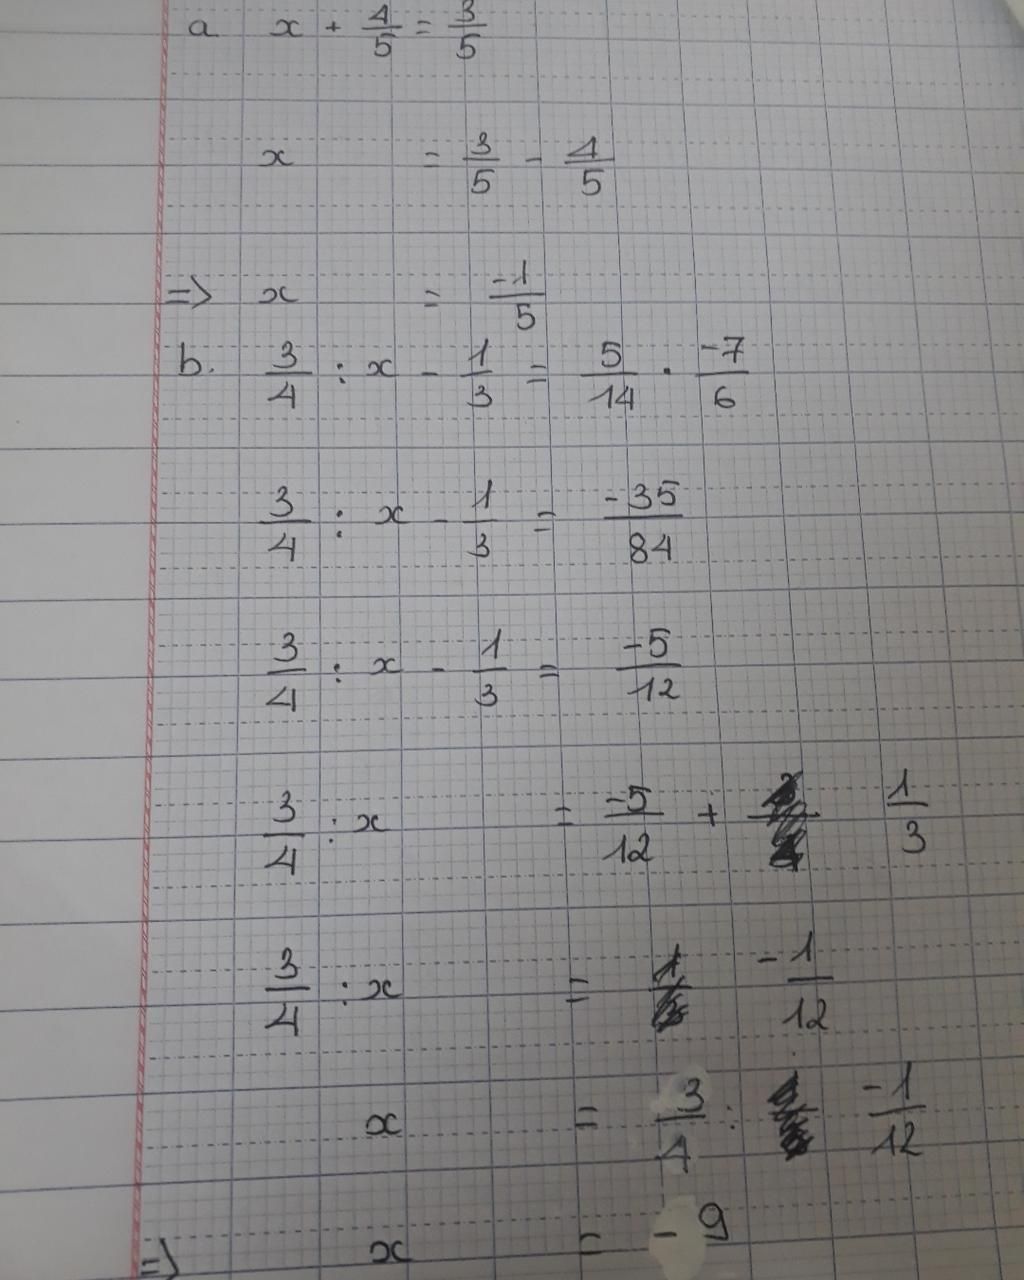 a x + 4/5 = 3/5
x = 3/5 - 4/5
=> x = -1/5
b. 3/4 : x - 1/3 = 5/14 . -7/6
3/4 : x - 1/3 = -35/84
3/4 : x - 1/3 = -5/12
3/4 : x = -5/12 + 1/3
3/4 : x = -1/12
x = 3/4 : -1/12
=> x = -9